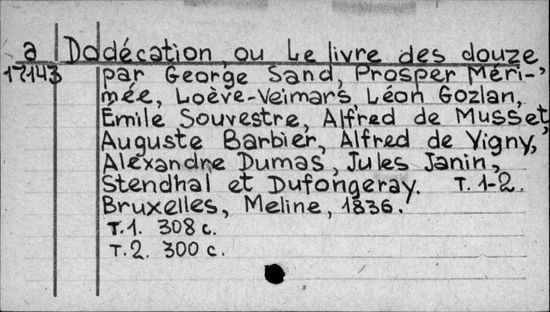 a Dodécation, ou Le livre des douze
17143 par George Sand, Prosper Méri-
mée, Loève-Veimars, Léon Gozlan,
Emile Souvestre, Alfred de Musset,
Auguste Barbier, Alfred de Vigny,
Alexandre Dumas, Jules Janin,
Stendhal et Dufongeray. T. 1-2.
Bruxelles, Meline, 1836.
T.1. 308 c.
T.2. 300 c.